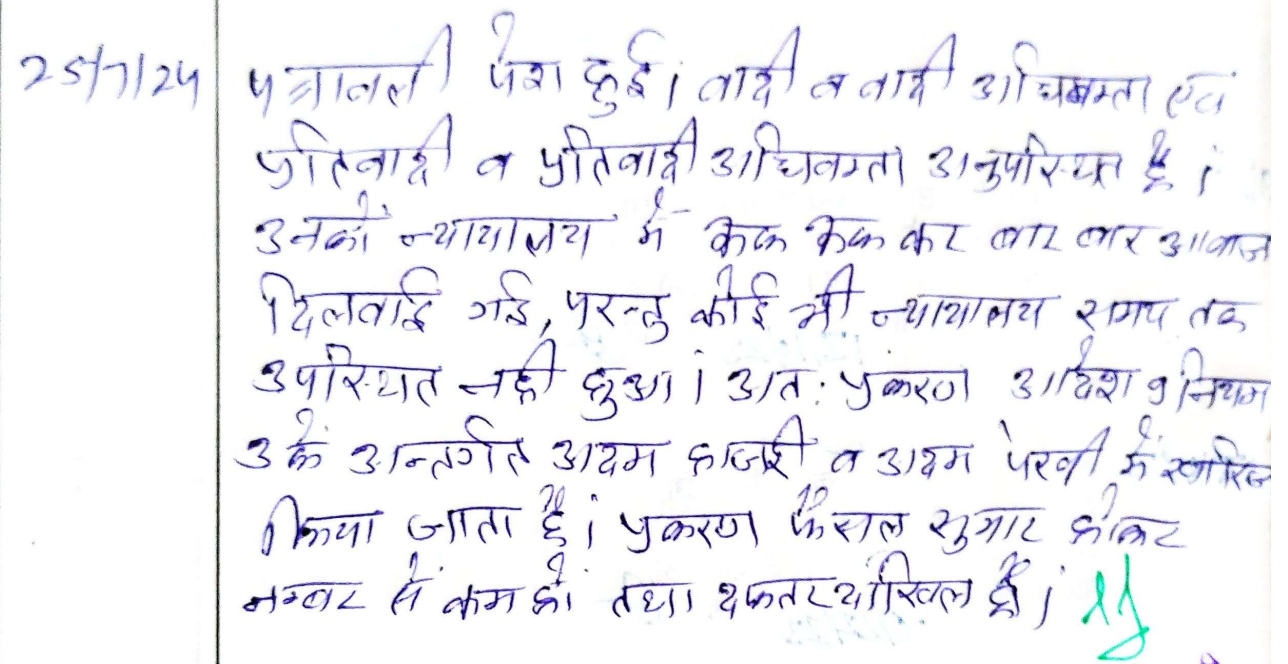 25/7/24 पत्रावली पेश हुई। वादी व वादी अधिवक्ता एवं
प्रतिवादी व प्रतिवादी अधिवक्ता अनुपस्थित है।
उनको न्यायालय में रूक रूक कर बार बार आवाज
दिलवाई गई, परन्तु कोई भी न्यायालय समय तक
उपस्थित नही हुआ। अतः प्रकरण आदेश 9 नियम
3 के अन्तर्गत अदम हाजरी व अदम पेरवी में खारिज
किया जाता है। प्रकरण फैसल सुमार होकर
नम्बर से कम हो तथा दफ्तर दाखिल हो।